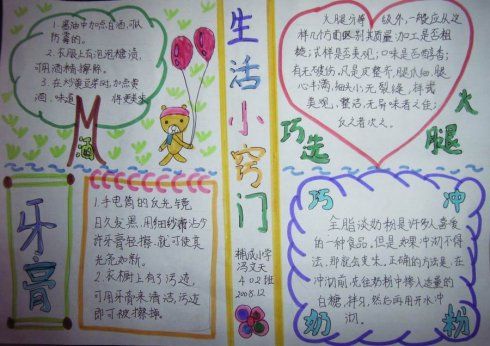 1.酱油中加点白酒,可以
防霉的。
2.衣服上有泡泡糖渍,
可用酒精擦除。
3.在炒黄豆芽时,加点黄
酒,味道
酒
生活小窍门
大腿分等级外,一般应从这
样几个方面区别其质量:加工是否粗
糙;式样是否美观;口味是否醇香;
有无破伤,凡是皮整齐,腿爪细,腿
心丰满,细头小,无裂缝,样式
美观,整洁,无异味者之佳;
反之者次之。
巧选
火腿
牙膏
1.手电筒的反光镜
日久发黑,用细纱布沾少
许牙膏轻擦,就可使其
光亮如新。
2.衣橱上有了污迹,
可用牙膏来清洁,污迹
即可被擦掉。
小学
冯文天
402班
2008.12
巧冲
全脂淡奶粉是许多人喜爱
的一种食品,但是如果冲沏不得
法,那就会生。正确的方法是,在
冲沏前,先往奶粉中掺入适量的
白糖,拌匀,然后再用开水冲
沏。
奶粉